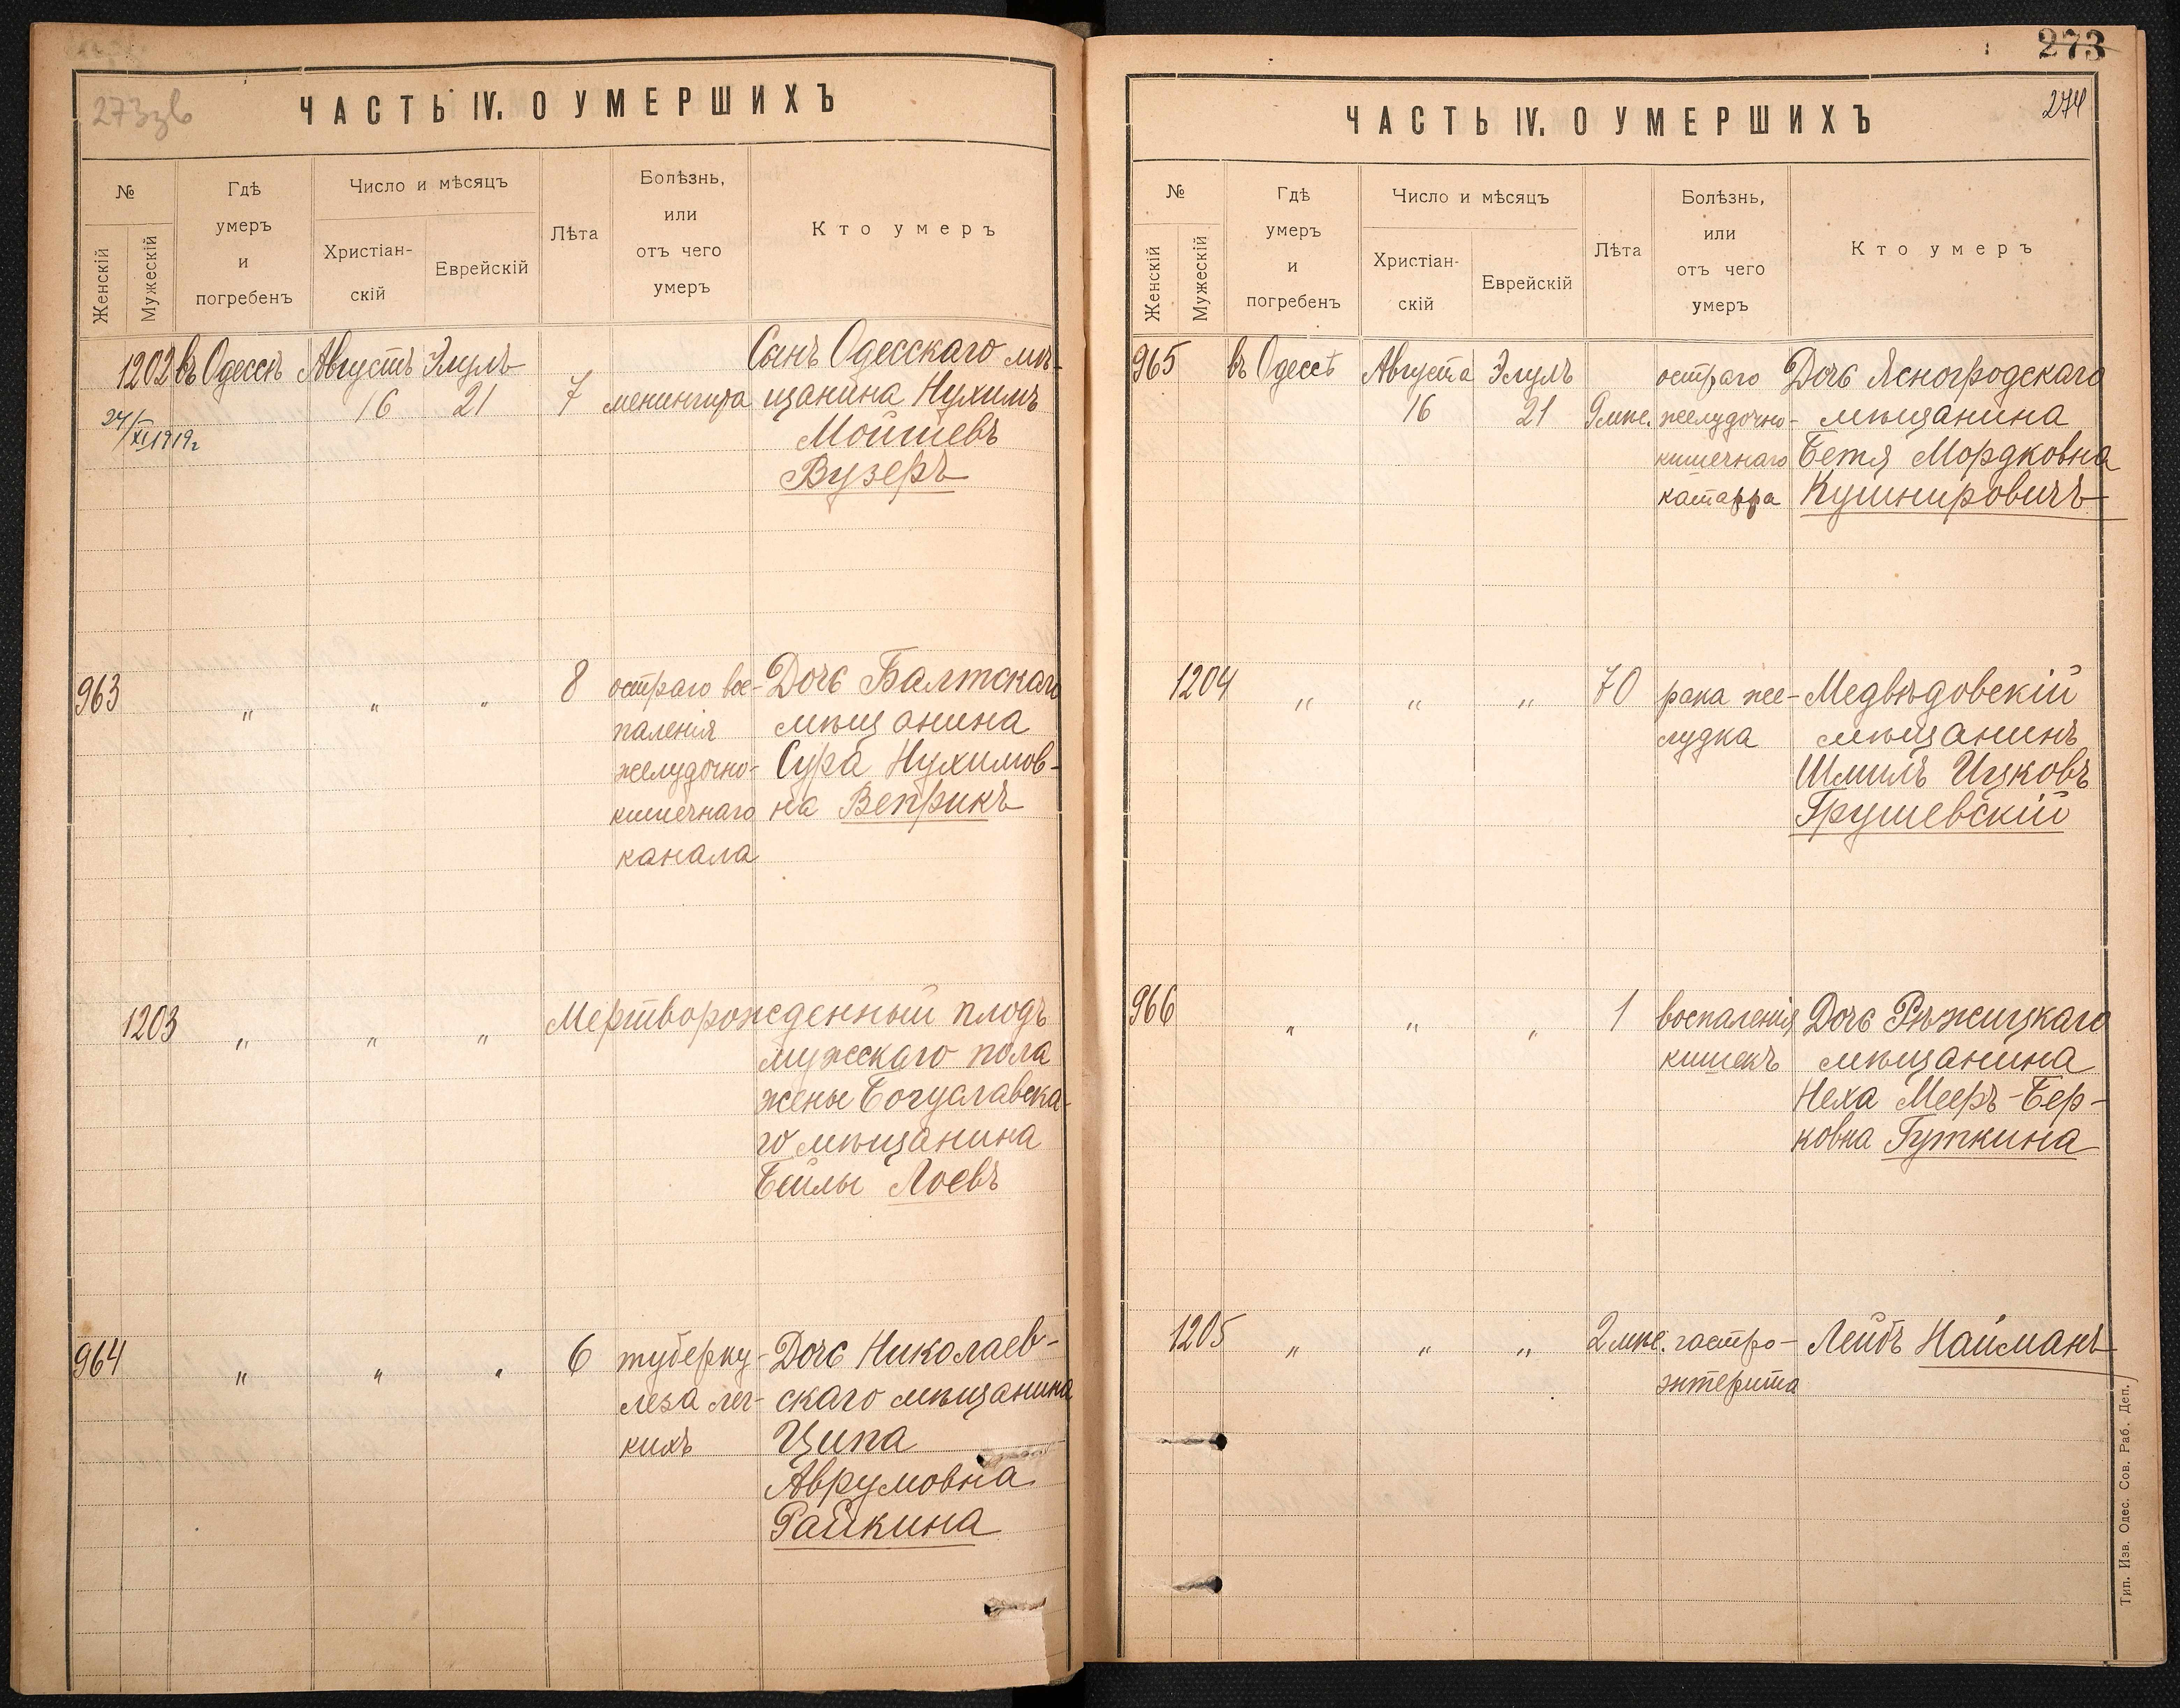 273зв
ЧАСТЬ IV. О УМЕРШИХЪ
№
Женскій
Мужескій
Гдѣ
умеръ
и
погребенъ
Число и мѣсяцъ
Христіан-
скій
Еврейскій
Лѣта
Болѣзнь,
или
отъ чего
умеръ
Кто умеръ
1202 въ Одессѣ Августъ Элулъ Сынъ Одесскаго мѣ-
16 21 7 менингита щанина Нухимъ
24/XI 1919г
Мойшевъ
Вузеръ
963 " " " 8 остраго вос- Дочь Балтскаго
паленія мѣщанина
желудочно- Сура Нухимов-
кишечнаго на Веприкъ
канала
1203 " " " Мертворожденный плодъ
мужескаго пола
жены Богуславска-
го мѣщанина
Бейлы Лоевъ
964 " " " 6 туберку- Дочь Николаев-
леза лег- скаго мѣщанина
кихъ Ципа
Аврумовна
Райкина
273
274
ЧАСТЬ IV. О УМЕРШИХЪ
№
Женскій
Мужескій
Гдѣ
умеръ
и
погребенъ
Число и мѣсяцъ
Христіан-
скій
Еврейскій
Лѣта
Болѣзнь,
или
отъ чего
умеръ
Кто умеръ
965 въ Одессѣ Августа Элулъ остраго Дочь Ясногродскаго
16 21 9 мѣс. желудочно- мѣщанина
кишечнаго Бетя Мордковна
катарра Кушнировичъ
1204 " " " 70 рака же- Медвѣдовскій
лудка мѣщанинъ
Шмиль Ицковъ
Грушевскій
966 " " " 1 воспаленія Дочь Рѣжицкаго
кишекъ мѣщанина
Неха Мееръ-Бер-
ковна Гуткина
1205 " " " 2 мѣс. гастро- Лейбъ Найманъ
энтерита
Тип. Изв. Одес. Сов. Раб. Деп.